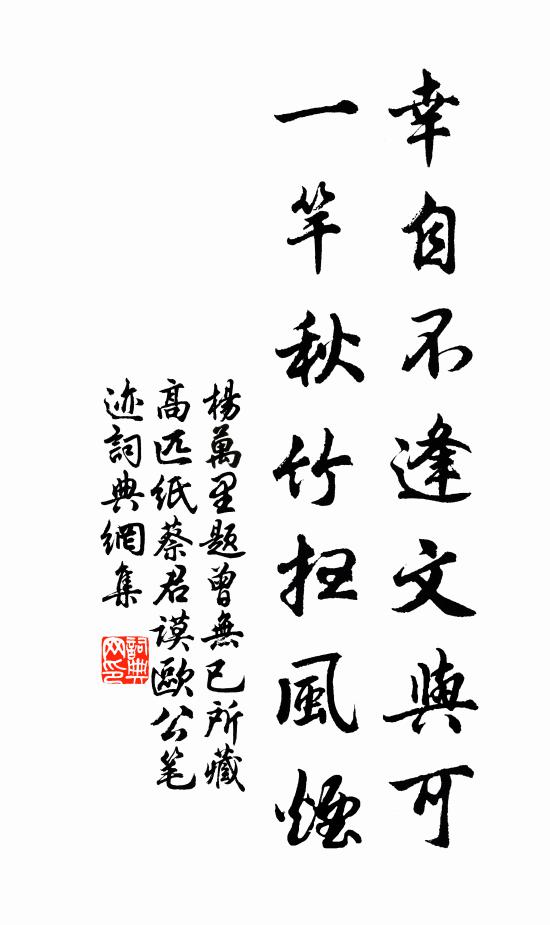 幸自不逢文與可
一竿秋竹扫風煙
楊萬里題曾無已所藏
高匹纸蔡君謨歐公笔
迹詞典網集
詞典
网印